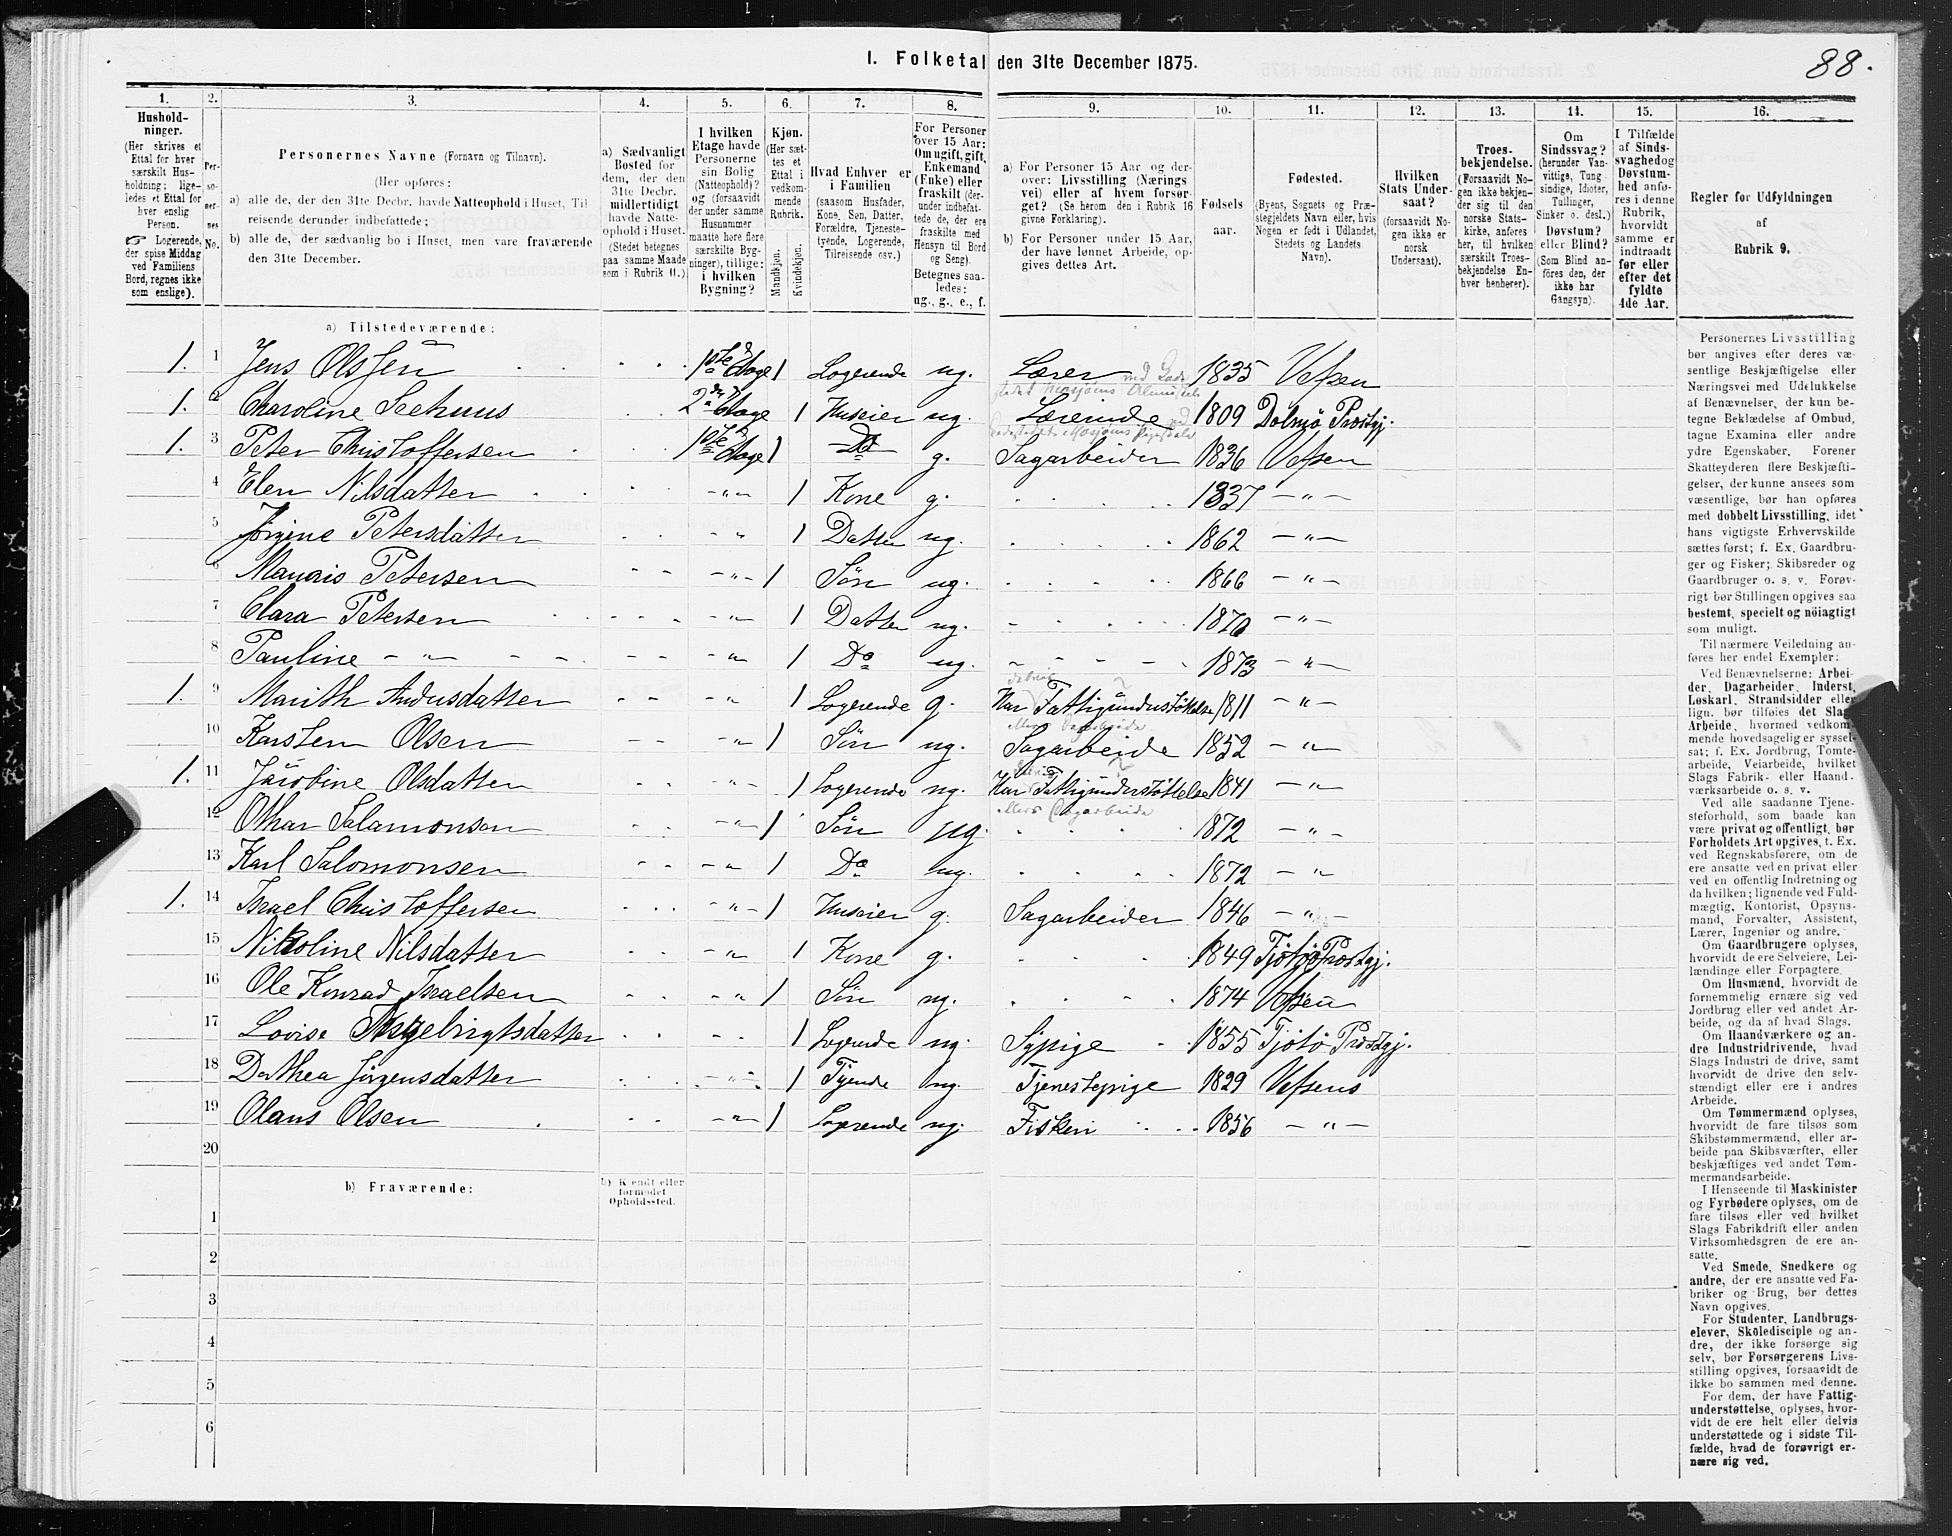 I. Folketal den 31te December 1875.
88.
1.
2.
3.
4.
5.
6.
7.
8.
9.
10.
11.
12.
13.
14.
15.
16.
Hushold-
ninger.
(Her skrives et
Ettal for hver
særskilt Hus-
holdning; lige-
ledes et Ettal for
hver enslig
Person.
☞ Logerende,
der spise Middag
ved Familiens
Bord, regnes ikke
som enslige).
Per-
so-
ner-
nes
No.
Personernes Navne (Fornavn og Tilnavn).
(Her opføres:
a) alle de, der den 31te Decbr. havde Natteophold i Huset, Til
reisende derunder indbefattede;
b) alle de, der sædvanlig bo i Huset, men vare fraværende
den 31te December.
a) Sædvanligt
Bosted for
dem, der den
31te Decbr.
midlertidigt
havde Natte-
ophold i Huset.
(Stedet betegnes
paa samme Maade
som i Rubrik 11.)
I hvilken
Etage havde
Personerne
sin Bolig
(Natteophold)?
og (forsaavidt
der under samme
Husnummer
maatte høre flere
særskilte Byg-
ninger), tillige:
i hvilken
Bygning?
Kjøn.
(Her sæt-
tes et
Ettal i
vedkom-
mende
Rubrik.
Mandkjøn.
Kvindekjøn.
Hvad Enhver er
i Familien
(saasom Husfader,
Kone, Søn, Datter,
Forældre, Tjeneste-
tyende, Logerende,
Tilreisende osv.)
For Personer
over 15 Aar:
Om ugift, gift,
Enkemand
(Enke) eller
fraskilt (der-
under indbefat-
tede de, der ere
fraskilte med
Hensyn til Bord
og Seng).
Betegnes saa-
ledes:
ug., g., e., f.
a) For Personer 15 Aar og der-
over: Livsstilling (Nærings
vei) eller af hvem forsør-
get? (Se herom den i Rubrik 16
givne Forklaring).
b) For Personer under 15 Aar,
der have lønnet Arbeide, op-
gives dettes Art.
Fødsels
aar.
Fødested.
(Byens, Sognets og Præ-
stegjeldets Navn eller, hvis
Nogen er født i Udlandet,
Stedets og Landets
Navn).
Hvilken
Stats Under-
saat?
(forsaavidt No-
gen ikke er
norsk
Undersaat).
Troes-
bekjendelse.
(Forsaavidt No-
gen ikke bekjen-
der sig til den
norske Stats-
kirke, anføres
her, til hvilken
særskilt Troes-
bekjendelse En-
hver henhører).
Om
Sindssvag?
(herunder Van-
vittige, Tung
sindige, Idioter,
Tullinger,
Sinker o. desl.)
Døvstum?
eller Blind?
(Som Blind an-
føres den, der
ikke har
Gangsyn).
I Tilfælde
af Sinds-
svaghed og
Døvstum-
hed anfø-
res i denne
Rubrik,
hvorvidt
samme er
indtraadt
før eller
efter det
fyldte
4de Aar.
Regler for Udfyldningen
af
Rubrik 9.
a) Tilstedeværende:
1. 1 Jens Olssen 1ste Etage 1 Logerende ug. Lærer 1835 Vefsen
1. 2 Charoline Seehuus 2den Etage 1 Huseier ug. Lærerinde 1809 Dolmø Præstgj.
1. 3 Peter Christoffersen 1ste Etage 1 Do g. Sagarbeider 1836 Vefsen
4 Elen Nilsdatter - " - 1 Kone g. 1837 - " -
5 Jørgine Petersdatter - " 1 Datter ug. 1862 - " -
6 Petersen - " - 1 Søn ug. 1866 - " -
7 Clara Petersen - " - 1 Datter ug. 1870 - " -
8 Pauline - " - - " 1 Do ug. 1873 - " -
1. 9 Marith Andersdatter - " 1 Logerende g. Har Fattigunderstøttelse 1811 - " -
10 Karsten Olsen - " 1 Søn ug. Sagarbeide 1852 - " -
1. 11 Jacobine Olsdatter - " 1 Logerende ug. Har Fattigunderstøttelse 1841 - " -
12 Othar Salamonsen - " - 1 Søn ug. 1872 - " -
13 Karl Salomonsen - " 1 Do ug. 1872 - " -
1. 14 Israel Christoffersen - " - 1 Huseier g. Sagarbeider 1846 - " -
15 Nikoline Nilsdatter - " 1 Kone g. 1849 Tjøtø Præstgj.
16 Ole Konrad Israelsen - " 1 Søn ug. 1874 Vefsen
17 Lovise Ingebrigtsdatter 1 Logerende ug. Sypige 1855 Tjøtø Præstgj.
18 Dorthea Jørgensdatter - " - 1 Tyende ug. Tjenestepige 1829 Vefsens
19 Olaus Olsen - " - 1 Logerende ug. Fiskeri 1856 - " -
20
b) Fraværende:
b) Kjendt eller
formodet
Opholdssted.
1
2
3
4
5
6
Personernes Livsstilling
bør angives efter deres væ-
sentlige Beskjæftigelse eller
Næringsvei med Udelukkelse
af Benævnelser, der kun be-
tegne Beklædelse af Ombud,
tagne Examina eller andre
ydre Egenskaber. Forener
Skatteyderen flere Beskjæfti-
gelser, der kunne ansees som
væsentlige, bør han opføres
med dobbelt Livsstilling, idet
hans vigtigste Erhvervskilde
sættes først; f. Ex. Gaardbru-
ger og Fisker; Skibsreder og
Gaardbruger o. s. v. Forøv-
rigt bør Stillingen opgives saa
bestemt, specielt og nöiagtigt
som muligt.
Til nærmere Veiledning an-
føres her endel Exempler:
Ved Benævnelserne: Arbei-
der, Dagarbeider, Inderst,
Løskarl, Strandsidder eller
lign. bør tilføies det Slags
Arbeide, hvormed vedkom-
mende hovedsagelig er syssel-
sat; f. Ex. Jordbrug, Tomte-
arbeide, Veiarbeide, hvilket
Slags Fabrik- eller Haand-
værksarbeide o. s. v.
Ved alle saadanne Tjene-
steforhold, som baade kan
være privat og offentligt, bør
Forholdets Art opgives, t. Ex.
ved Regnskabsførere, om de
ere ansatte ved en privat eller
ved en offentlig Indretning og
da hvilken; lignende ved Fuld-
mægtig, Kontorist, Opsyns-
mand, Forvalter, Assistent,
Lærer, Ingeniør og andre.
Om Gaardbrugere oplyses,
hvorvidt de ere Selveiere, Lei-
lændinge eller Forpagtere.
Om Husmænd, hvorvidt de
fornemmelig ernære sig ved
Jordbrug eller ved andet Ar-
beide, og da af hvad Slags.
Om Haandværkere og an-
dre Industridrivende, hvad
Slags Industri de drive, samt
hvorvidt de drive den selv-
stændigt eller ere i andres
Arbeide.
Om Tømmermænd oplyses,
hvorvidt de fare tilsøs som
Skibstømmermænd, eller ar-
beide paa Skibsværfter, eller
beskjæftiges ved andet Tøm-
mermandsarbeide.
I Henseende til Maskinister
og Fyrbødere oplyses, om de
fare tilsøs eller ved hvilket
Slags Fabrikdrift eller anden
Virksomhedsgren de ere an-
satte.
Ved Smede, Snedkere og
andre, der ere ansatte ved Fa-
briker og Brug, bør dettes
Navn opgives.
For Studenter, Landbrugs-
elever, Skoledisciple og an-
dre, der ikke forsørge sig
selv, bør Forsørgerens Livs-
stilling opgives, forsaavidt de
ikke bo sammen med denne.
For dem, der have Fattig-
understøttelse, oplyses, hvor-
vidt de ere helt eller delvis
understøttede og i sidste Til-
fælde, hvad de forøvrigt er-
nære sig ved.